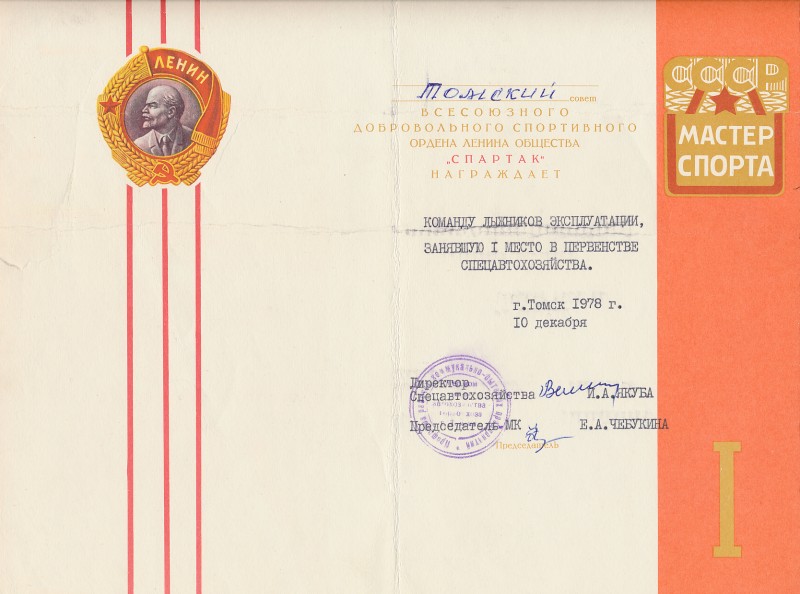 ЛЕНИН
Томский совет
ВСЕСОЮЗНОГО
ДОБРОВОЛЬНОГО СПОРТИВНОГО
ОРДЕНА ЛЕНИНА ОБЩЕСТВА
„СПАРТАК“
НАГРАЖДАЕТ
КОМАНДУ ЛЫЖНИКОВ ЭКСПЛУАТАЦИИ,
ЗАНЯВШУЮ I МЕСТО В ПЕРВЕНСТВЕ
СПЕЦАВТОХОЗЯЙСТВА.
г.Томск 1978 г.
10 декабря
Директор
Спецавтохозяйства И.А.ЯКУБА
Председатель МК Е.А.ЧЕБУКИНА
Председатель
СССР
МАСТЕР
СПОРТА
I